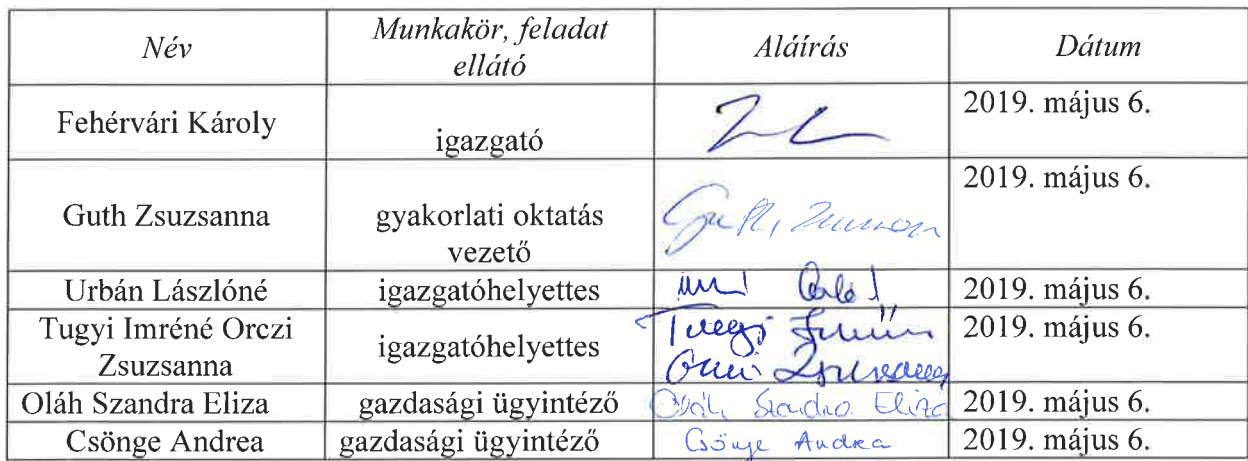 Név Munkakör, feladat ellátó Aláírás Dátum
Fehérvári Károly igazgató 2019. május 6.
Guth Zsuzsanna gyakorlati oktatás vezető 2019. május 6.
Urbán Lászlóné igazgatóhelyettes 2019. május 6.
Tugyi Imréné Orczi Zsuzsanna igazgatóhelyettes 2019. május 6.
Oláh Szandra Eliza gazdasági ügyintéző Oláh Szandra Eliza 2019. május 6.
Csönge Andrea gazdasági ügyintéző Csönge Andrea 2019. május 6.